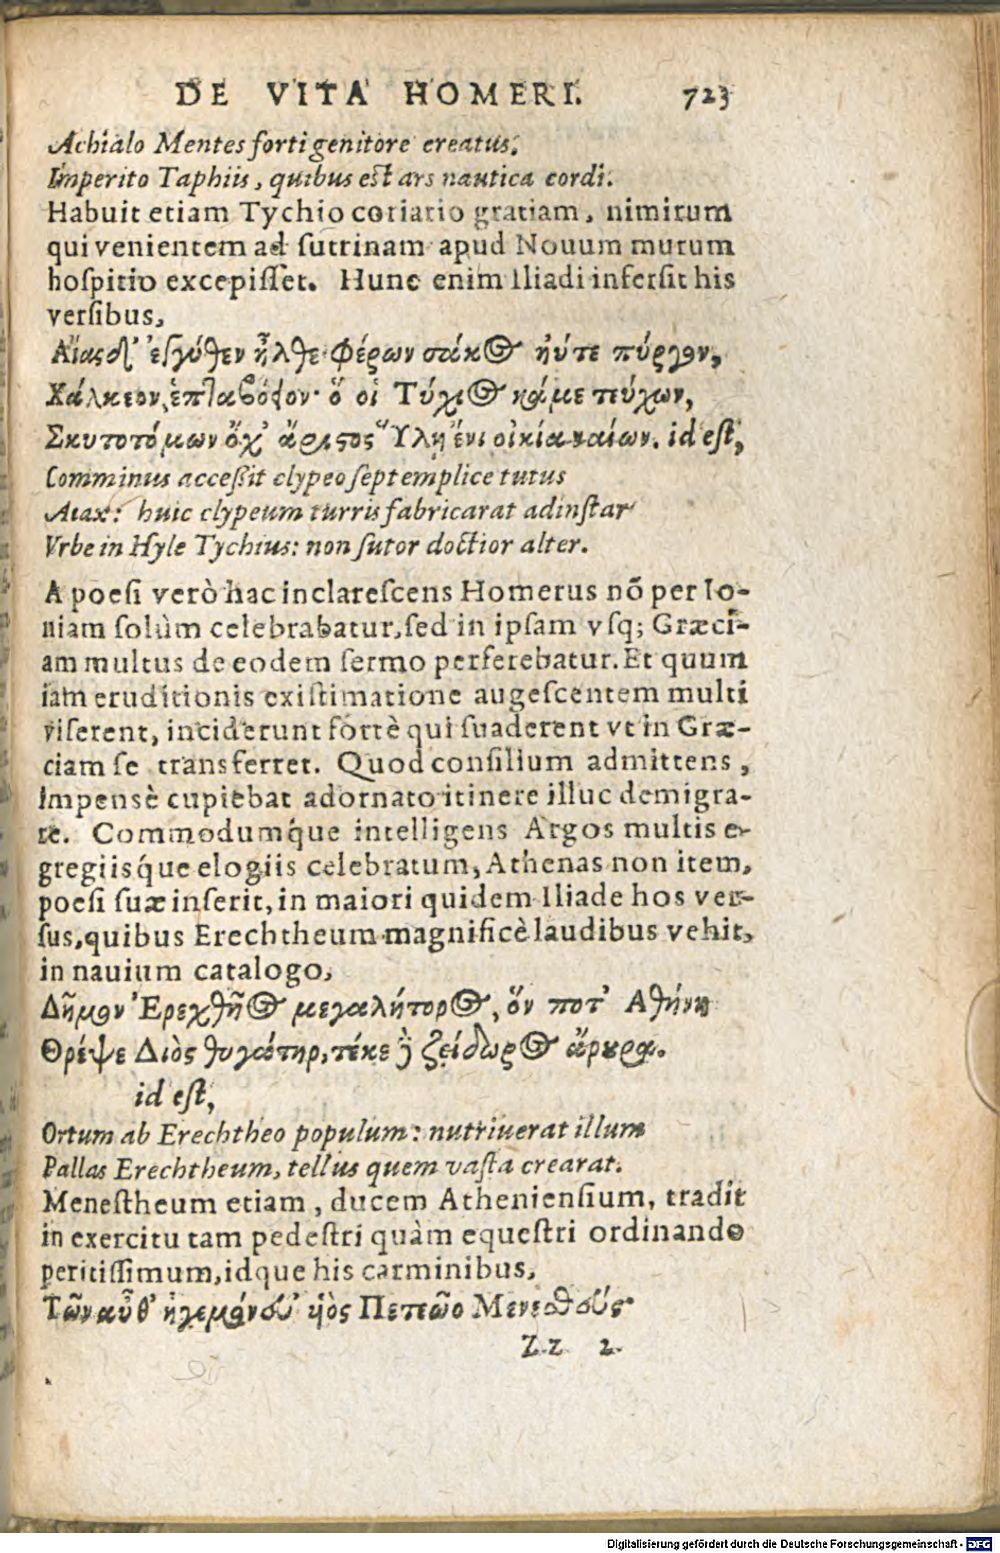 DE VITA HOMERI. 723
Achialo Mentes forti genitore creatus,
Imperito Taphiis, quibus est ars nautica cordi.
Habuit etiam Tychio coriario gratiam, nimirum
qui venientem ad sutrinam apud Nouum murum
hospitio excepisset. Hunc enim Iliadi infersit his
versibus,
Αἴας δ' ἐγγύθεν ἦλθε φέρων σάκος ἠύτε πύργον,
Χάλκεον, ἑπταβόειον· ὅ οἱ Τύχιος κάμε τεύχων,
Σκυτοτόμων ὄχ' ἄριστος Ὕλῃ ἔνι οἰκία ναίων. id est,
Comminus accessit clypeo septemplice tutus
Aiax: huic clypeum turris fabricarat ad instar
Vrbe in Hyle Tychius: non sutor doctior alter.
A poesi verò hac inclarescens Homerus nõ per Io-
niam solùm celebrabatur, sed in ipsam vsq; Græci-
am multus de eodem sermo perferebatur. Et quum
iam eruditionis existimatione augescentem multi
viserent, inciderunt fortè qui suaderent vt in Græ-
ciam se transferret. Quod consilium admittens,
impensè cupiebat adornato itinere illuc demigra-
re. Commodumq́ue intelligens Argos multis e-
gregiisq́ue elogiis celebratum, Athenas non item,
poesi suæ inserit, in maiori quidem Iliade hos ver-
sus, quibus Erechtheum magnificè laudibus vehit,
in nauium catalogo,
Δῆμον Ἐρεχθῆος μεγαλήτορος, ὅν ποτ' Ἀθήνη
Θρέψε Διὸς θυγάτηρ, τέκε δὲ ζείδωρος ἄρουρα.
id est,
Ortum ab Erechtheo populum: nutriuerat illum
Pallas Erechtheum, tellus quem vasta crearat.
Menestheum etiam, ducem Atheniensium, tradit
in exercitu tam pedestri quàm equestri ordinando
peritissimum, idque his carminibus,
Τῶν αὖθ' ἡγεμόνευ' υἱὸς Πετεῶο Μενεσθεύς
Zz 2
Digitalisierung gefördert durch die Deutsche Forschungsgemeinschaft - DFG